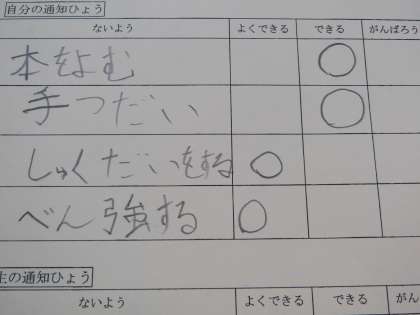 自分の通知ひょう
ないよう よくできる できる がんばろう
本をよむ ○
手つだい ○
しゅくだいをする ○
べん強する ○
主の通知ひょう
ないよう よくできる できる がん